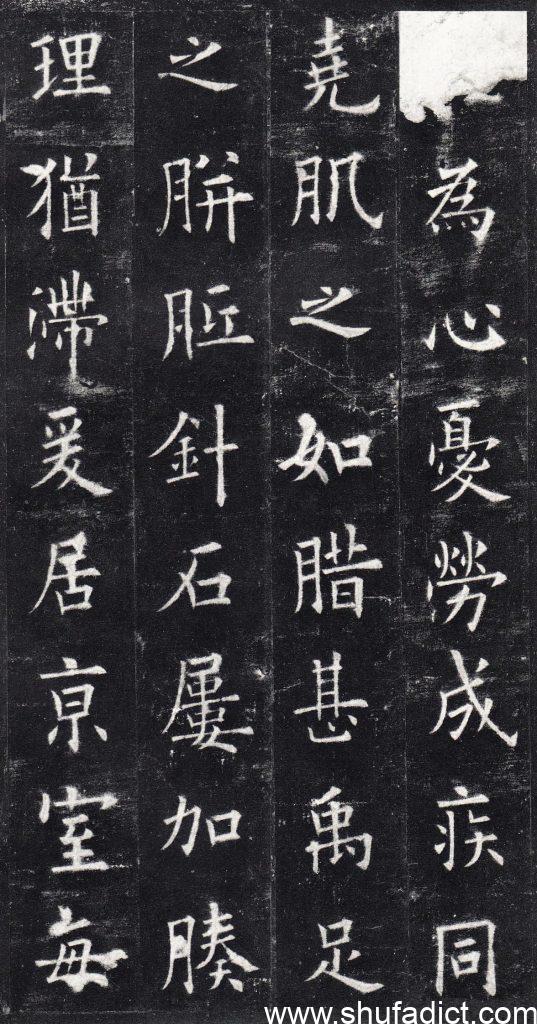 為心憂勞成疾同
堯肌之如腊甚禹足
之胼胝針石屢加腠
理猶滯爰居京室每
www.shufadict.com